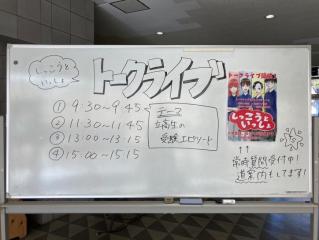 しっこうと
いっしょ
トークライブ
① 9:30～9:45
② 11:30～11:45
③ 13:00～13:15
④ 15:00～15:15
テーマ
立高生の
受験エピソード
トークライブ開催!
しっこうと
いっしょ
↑↑
常時質問受付中!
道案内もしてます!